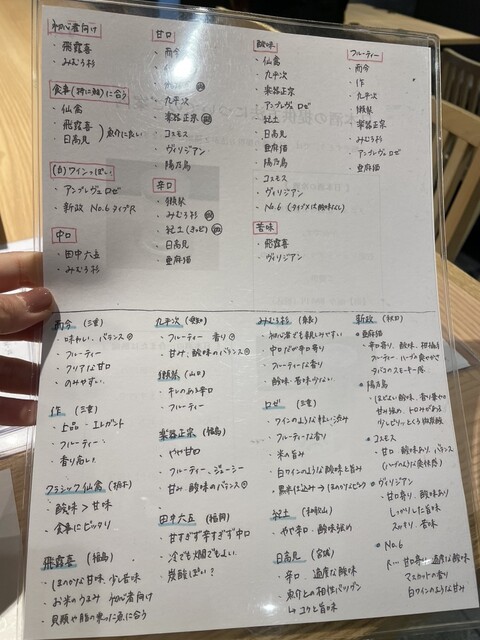 初心者向け
・飛露喜
・みむろ杉
食事(特に鮭)に合う
・仙禽
・飛露喜
・日高見
魚介にあい
(白)ワインっぽい
・アンプレヴュ ロゼ
・新政 No.6 タイプR
中口
・田中六五
・みむろ杉
甘口
・而今
・作
・九平次
・楽器正宗
・コスモス
・ヴィリジアン
・陽乃鳥
辛口
・獺祭
・みむろ杉
・紀土
・日高見
・亜麻猫
酸味
・仙禽
・九平次
・楽器正宗
・アンプレヴュ ロゼ
・紀土
・日高見
・亜麻猫
・陽乃鳥
・コスモス
・ヴィリジアン
・No.6 (タイプXは酸味なし)
苦味
・飛露喜
・ヴィリジアン
フルーティー
・而今
・作
・九平次
・獺祭
・楽器正宗
・みむろ杉
・アンプレヴュ ロゼ
・亜麻猫
而今 (三重)
・味わい、バランス◎
・フルーティー
・クリアな甘口
・のみやすい
作 (三重)
・上品・エレガント
・フルーティー
・香り高い
クラシック仙禽 (栃木)
・酸味 > 甘味
・食事にピッタリ
飛露喜 (福島)
・ほのかな甘味、少し苦味
・お米のうまみ 初心者向け
・貝類や脂の乗った魚に合う
九平次 (愛知)
・フルーティー 香り◎
・甘み、酸味のバランス◎
獺祭 (山口)
・キレのある辛口
・フルーティー
楽器正宗 (福島)
・やや甘口
・フルーティー、ジューシー
・甘み 酸味のバランス◎
田中六五 (福岡)
・甘すぎず辛すぎず中口
・冷でも燗でもよい
・炭酸ぽい?
みむろ杉 (奈良)
・初心者でも親しみやすい
・中口だが辛口寄り
・フルーティーな香り
・酸味・苦味少ない
ロゼ (三重)
・ワインのような軽い渋み
・フルーティーな香り
・米の旨み
・白ワインのような酸味と旨み
紀土 (和歌山)
・やや辛口・酸味強め
日高見 (宮城)
・辛口 適度な酸味
・魚介との相性バツグン
↳ コクと旨味
新政 (秋田)
・亜麻猫
辛口寄り、酸味、柑橘系
フルーティー、ハーブの爽やかさ
タバコのスモーキー感
・陽乃鳥
甘み強め、トロみがある
・コスモス
甘口 酸味あり バランス
・ヴィリジアン
甘口寄り、酸味あり
しっかりした旨味
スッキリ、苦味
・No.6
R… 甘口寄り、適度な酸味
マスカットの香り
白ワインのような甘み